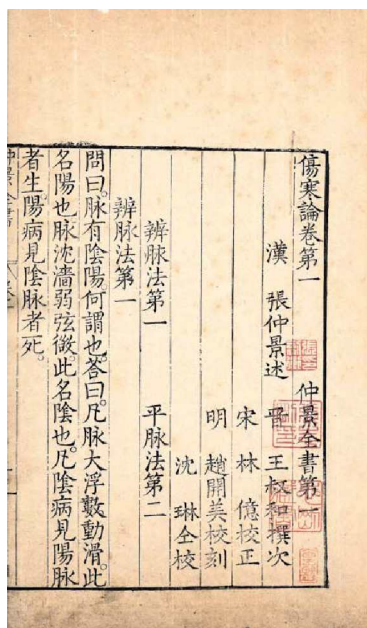 傷寒論卷第一 仲景全書第一
漢 張仲景述 晋 王叔和撰次
宋 林 億校正
明 趙開美校刻
沈 琳仝校
辨脉法第一 平脉法第二
辨脉法第一
問曰。脉有陰陽。何謂也。荅曰。凡脉大浮數動滑。此
名陽也。脉沈濇弱弦微。此名陰也。凡陰病見陽脉
者生。陽病見陰脉者死。
仲景全書